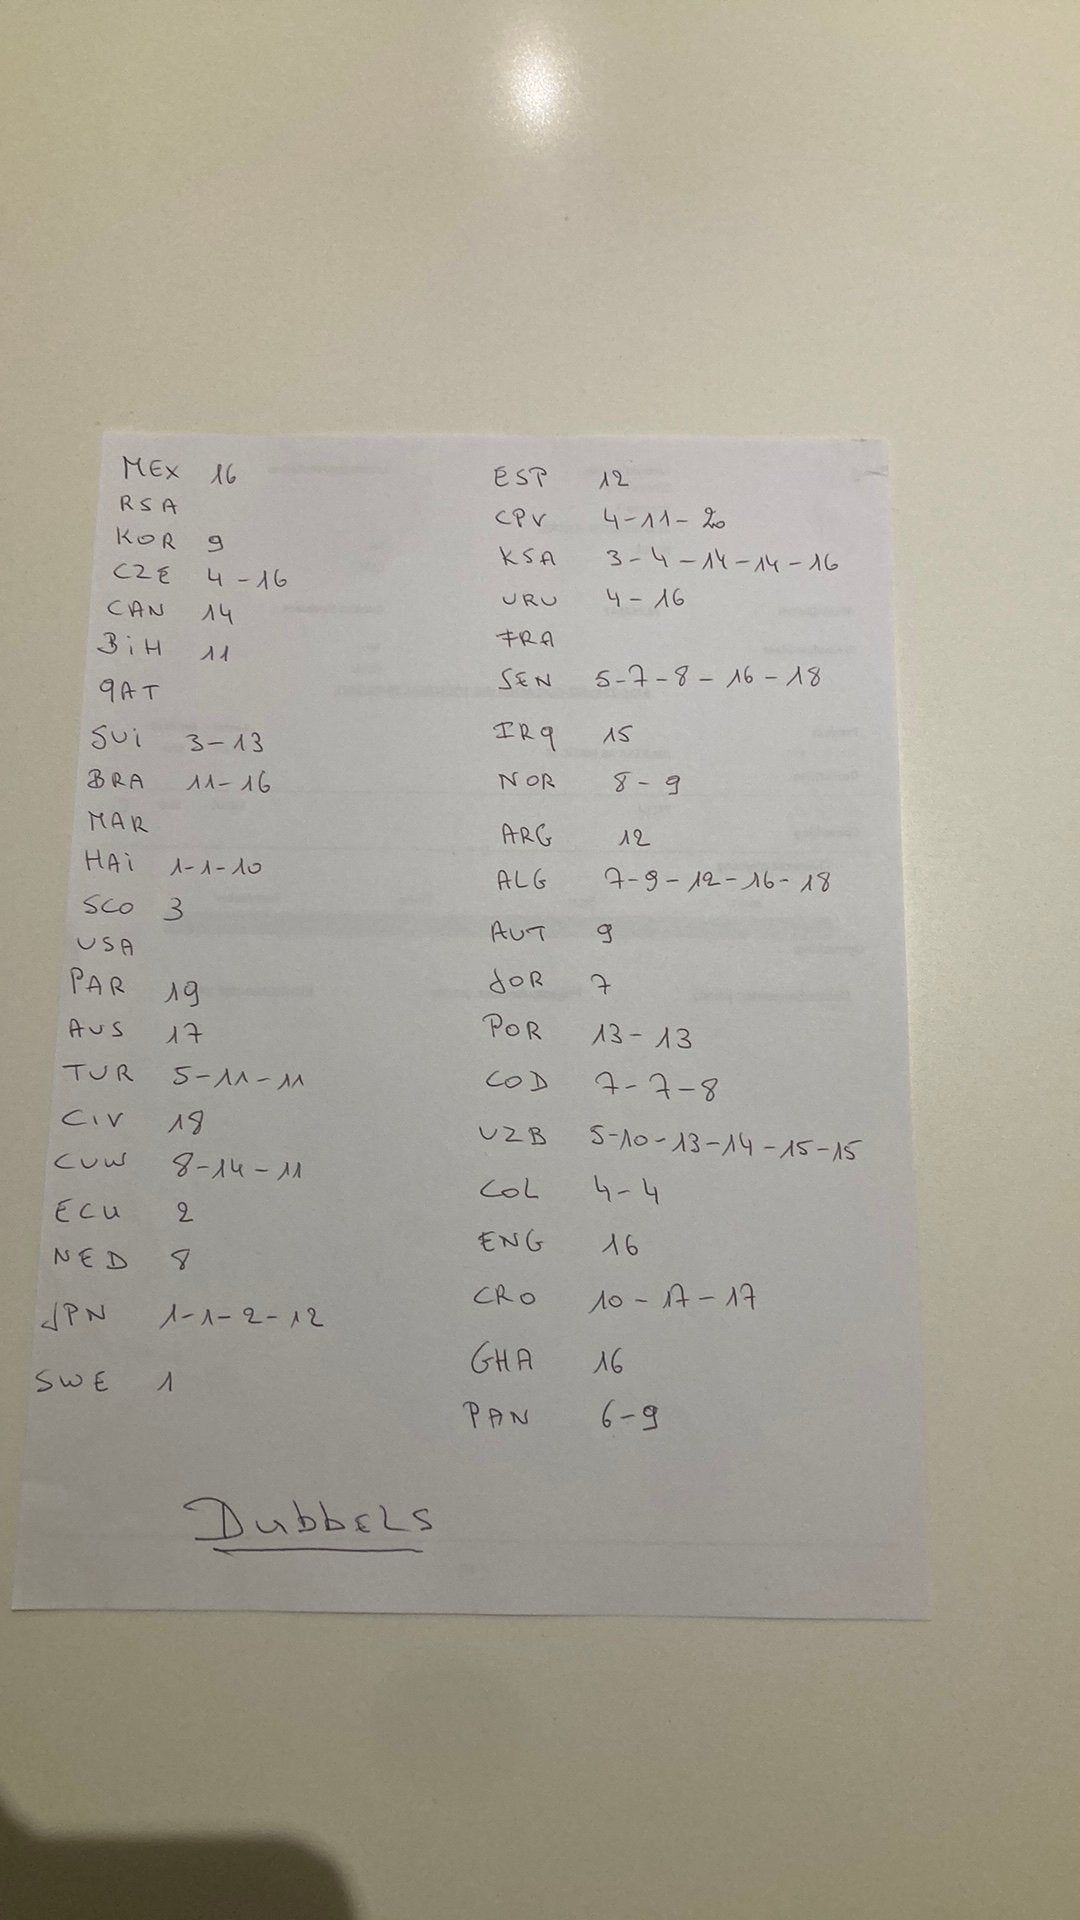 MEX 16
RSA
KOR 9
CZE 4 - 16
CAN 14
BiH 11
QAT
SUi 3 - 13
BRA 11 - 16
MAR
HAi 1 - 1 - 10
SCO 3
USA
PAR 19
AUS 17
TUR 5 - 11 - 11
CIV 18
CUW 8 - 14 - 11
ECU 2
NED 8
JPN 1 - 1 - 2 - 12
SWE 1
ESP 12
CPV 4 - 11 - 20
KSA 3 - 4 - 14 - 14 - 16
URU 4 - 16
FRA
SEN 5 - 7 - 8 - 16 - 18
IRQ 15
NOR 8 - 9
ARG 12
ALG 7 - 9 - 12 - 16 - 18
AUT 9
JOR 7
POR 13 - 13
COD 7 - 7 - 8
UZB 5 - 10 - 13 - 14 - 15 - 15
COL 4 - 4
ENG 16
CRO 10 - 17 - 17
GHA 16
PAN 6 - 9
DubbELS